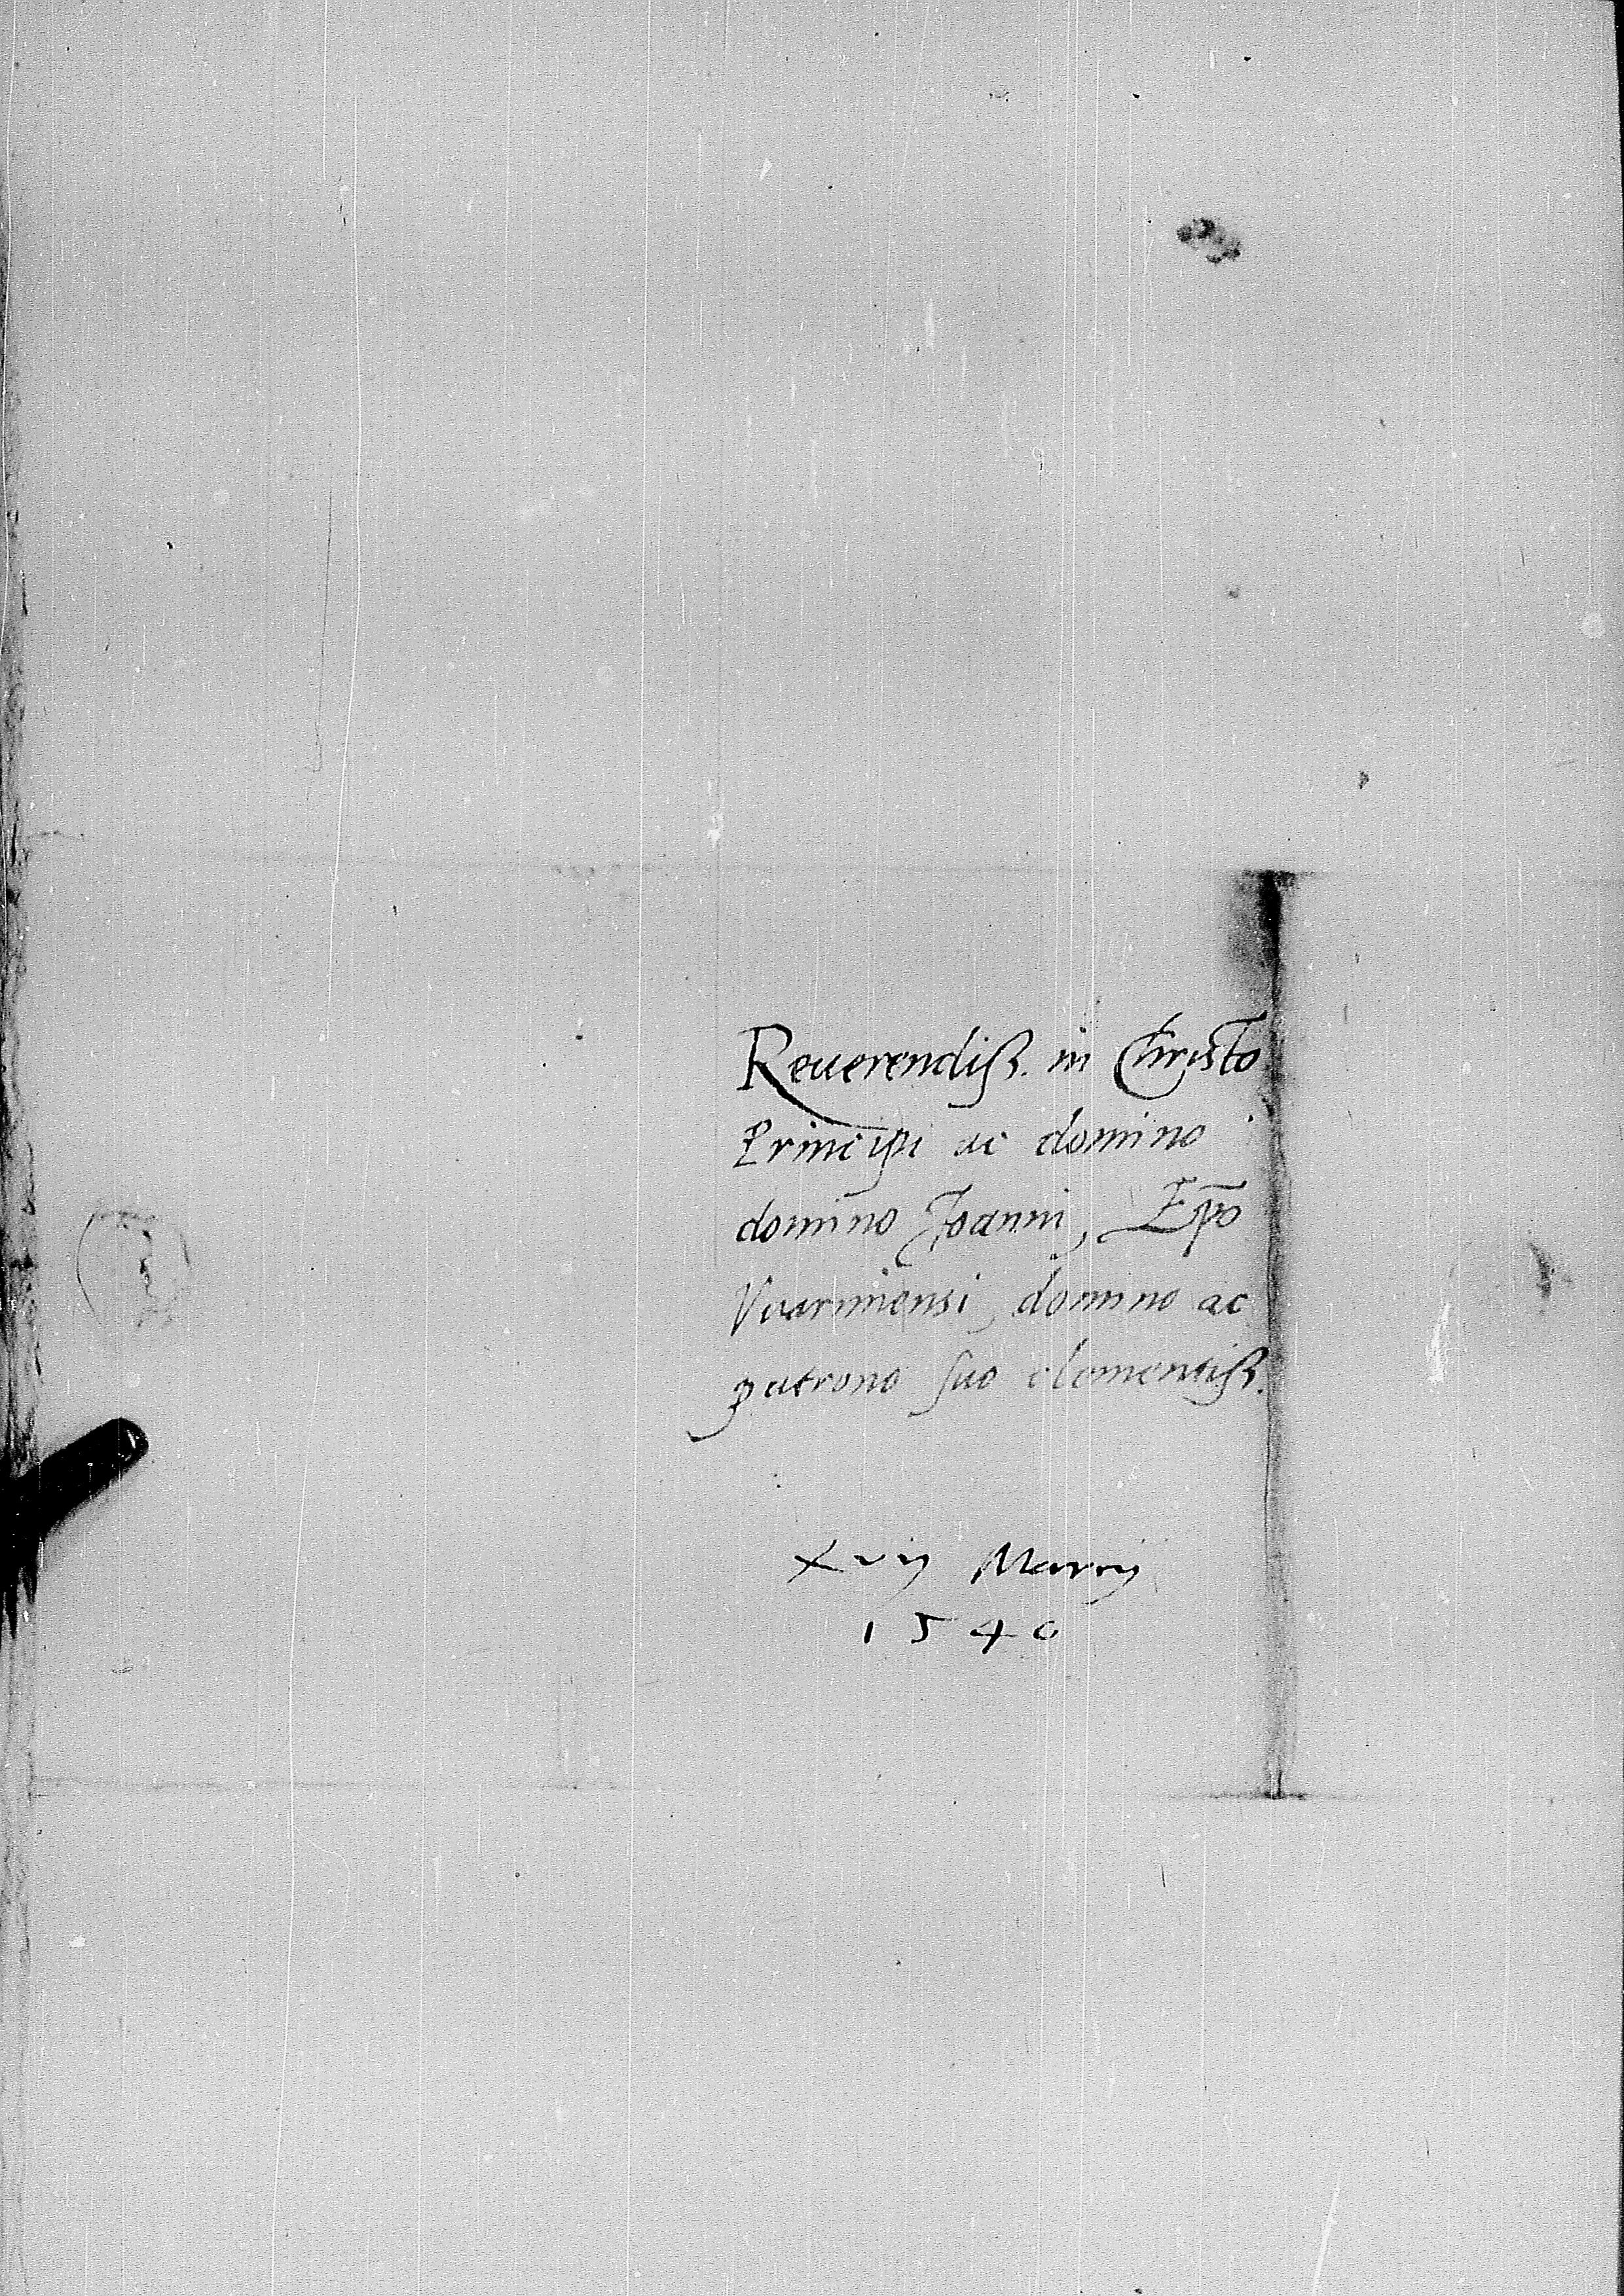 Reuerendiß. in Christo
Principi ac domino
domino Joanni, Ep̄o
Vuarmiensi, domino ac
patrono suo clementiß.
xvij Martij
1540